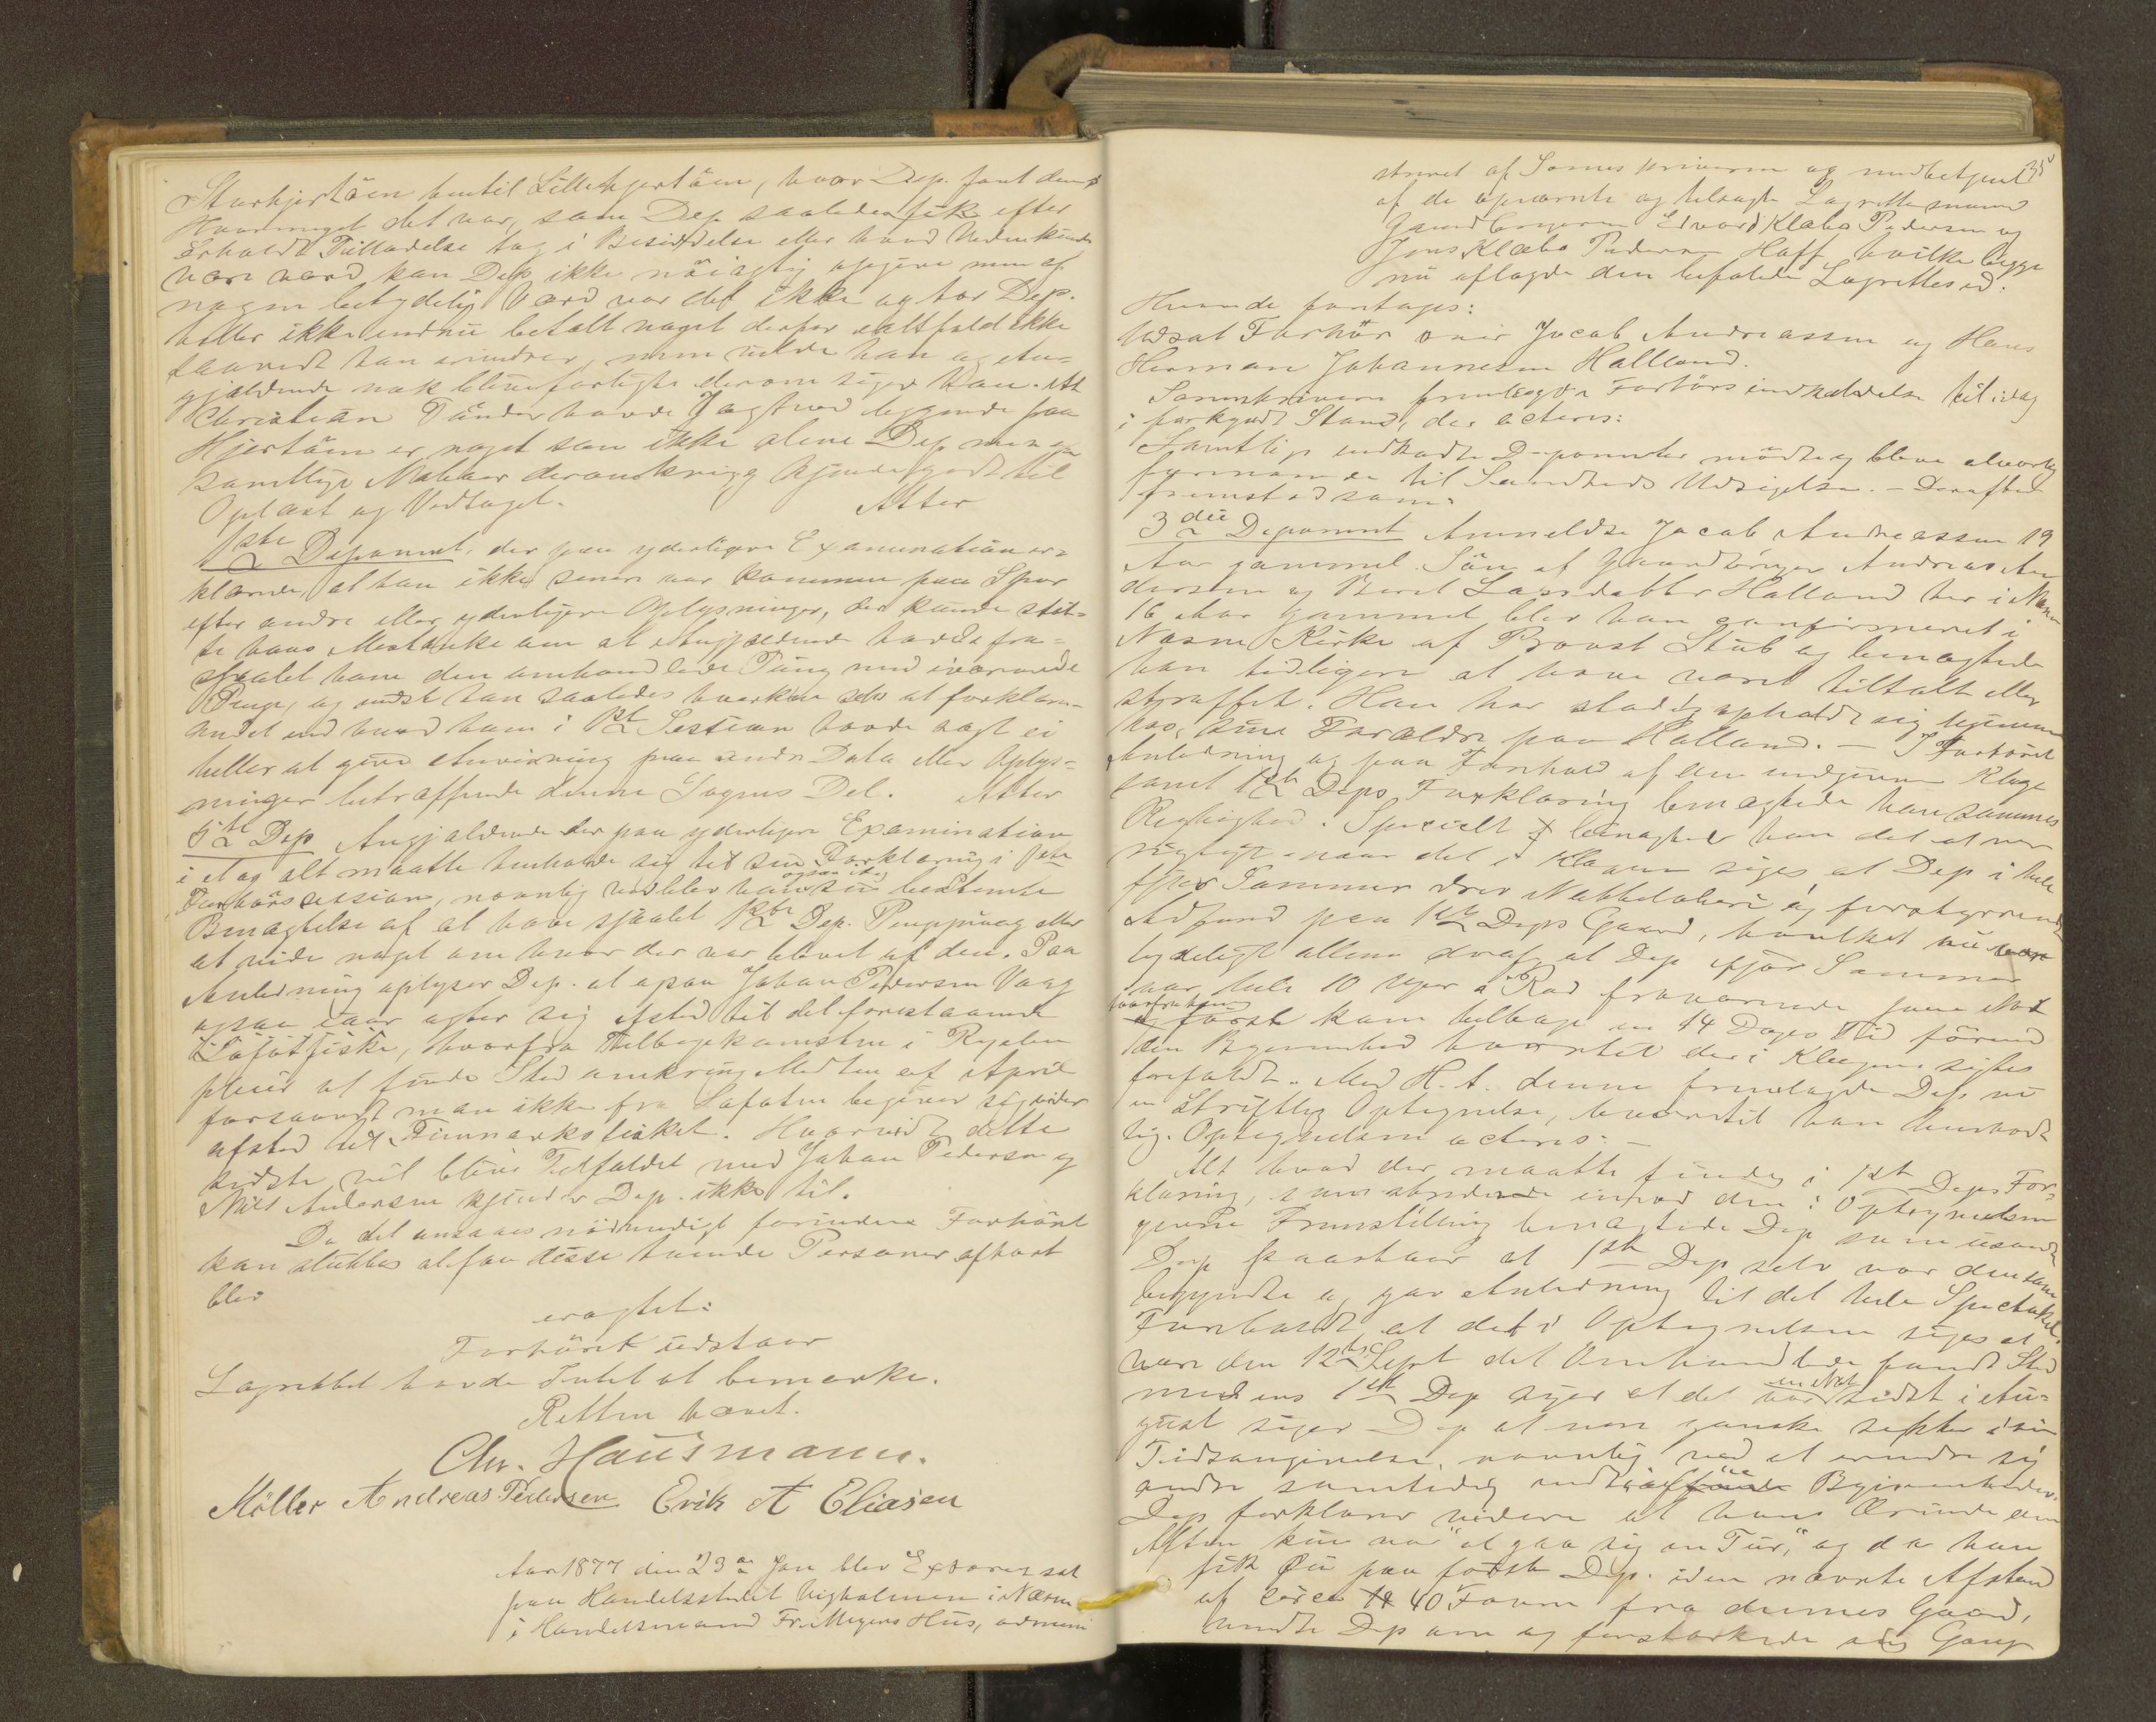 Storhjertöen hentil Lillehjertöen, hvor Dep. fant dem
Hvormeget det var, som Dep saaledes fik efter
erholdt Tilladelse tog i Besiddelse eller hvad Veden kunde
være værd kan Dep ikke nöiagtig opgive men af
nogen betydelig Værd var det ikke og har Dep.
heller ikke endnu betalt noget derfor ialtfald ikke
saavidt han erindrer, men vilde han og An-
gjældende nok blive forligte derom siger han. At
Christian Tønder havde Jagtved liggende paa
Hjertöen er noget som ikke alene Dep men og
samtlige Naboer deromkring kjender godt til
Oplæst og Vedtaget. Atter
1ste Deponent, der paa yderligere Examination er-
klærede, at han ikke senere var kommen paa Spor
efter andre eller yderligere Oplysninger, der kunde støt-
te hans Mistanke om at Angjældende havde fra-
stjaalet ham den omhandlede Pung med iværende
Penge, og vidste han saaledes hverken selv at forklare
andet end hvad han i 1ste Session havde sagt ei
heller at give Anvisning paa andre Data eller Oplys-
ninger betræffende denne Sagens Del. Atter
5te Dep Angjældende der paa yderligere Examination
i et og alt maatte henholde sig til sin Forklaring i 1ste
Forhørssession, navnlig vedblev han ogsaa idag sin bestemte
Benægtelse af at have stjaalet 1ste Dep. Pengepung eller
at vide noget om hvor der var blevet af den. Paa
Anledning oplyser Dep. at ogsaa Johan Pedersen Vaag
ogsaa iaar agter sig afsted til det forestaaende
Lofotfiske, hvorfra Tilbagekomsten i Regelen
pleier at finde Sted omkring Midten af April
forsaavidt man ikke fra Lofoten begiver sig videre
afsted til Finmarksfisket. Hvorvidt dette
sidste vil blive Tilfældet med Johan Pedersen og
Nils Andersen kjender Dep. ikke til.
Da det ansaaes nødvendigt forinden Forhøret
kan sluttes at faa disse tvende Personer afhørt
blev
eragtet:
Forhöret udstaar
Lagrettet havde Intet at bemærke.
Retten hævet.
Chr. Hausmann.
Möller Andreas Pedersen Erik A Eliasen
Aar 1877 den 23de Jan blev Extraret sat
paa Handelsstedet Vigholmen i Næsne
i Handelsmand Fr. Meyers Hus, admini
35
streret af Sorenskriveren og medbetjent
af de opnævnte og tilsagte Lagrettesmænd
Gaardbrugerne Edvard Klæbo Pedersen og
Jens Klæbo Pedersen Haff hvilke begge
nu aflagde den befalede Lagrettesed.
Hvorda foretoges:
Udsat Forhör over Jacob Andreassen og Hans
Herman Johannesen Halland.
Sorenskriveren fremlagde Forhörsindkaldelse til idag
i forkyndt Stand, der acteres:
Samtlige indkaldte Deponenter mödte og bleve alvorlig
formanede til Sandheds Udsigelse. – Derefter
fremstod som:
3die Deponent Anmeldte Jacob Andreassen 19
Aar gammel. Sön af Gaardbruger Andreas An
dersen og Beret Larsdatter Halland her i Næsne
16 Aar gammel blev han confirmeret i
Næsne Kirke af Provst Stub og benægtede
han tidligere at have været tiltalt eller
straffet. Han har stadig opholdt sig hjemme
hos sine Forældre paa Halland. – I Forhöret
Anledning og paa Forehold af den indgivne Klage
samt 1ste Deps Forklaring benægtede han sammes
Rigtighed. Specielt benægter han det at være
rigtigt naar det i Klagen siges at Dep i hele
ifjor Sommer drev Natteløberi og forstyrrende
Adfærd paa 1ste Deps Gaard, hvilket nu
tydeligst allene deraf at Dep ifjor Sommer
var hele 10 Uger a Rad fraværende paa Not
hvorfra han först kom tilbage en 14 Dages Tid förend
den Begivenhed hvortil der i Klagen sigtes
forefaldt. Med H. t. denne fremlagde Dep nu
en skriftlig Optegnelse, hvortil han henholdt
sig. Optegnelsen acteres: –
Alt hvad der maatte findes i 1ste Deps For-
klaring, som stridende imod den i Optegnelsen
givne Fremstilling benægtede Dep som usandt
Dep paastaar at 1ste Dep selv var den som
begyndte og gav Anledning til det hele Spectakel.
Foreholdt, at det i Optegnelsen siges at
være den 12te Sept det Omhandlede fandt Sted
medens 1ste Dep siger at det var en Nat sidst i Au-
gust siger Dep at være ganske sikker i sin
Tidsangivelse, navnlig ved at erindre sig
andre samtidig indtrufne Begivenheder.
Dep forklarer videre at hans Ærinde den
Aften kun var "at gaa sig en Tur", og da han
fik Øie paa förste Dep. i den nævnte Afstand
af circa 40 Favne fra dennes Gaard,
vendte Dep om og forstærkede sin Gang